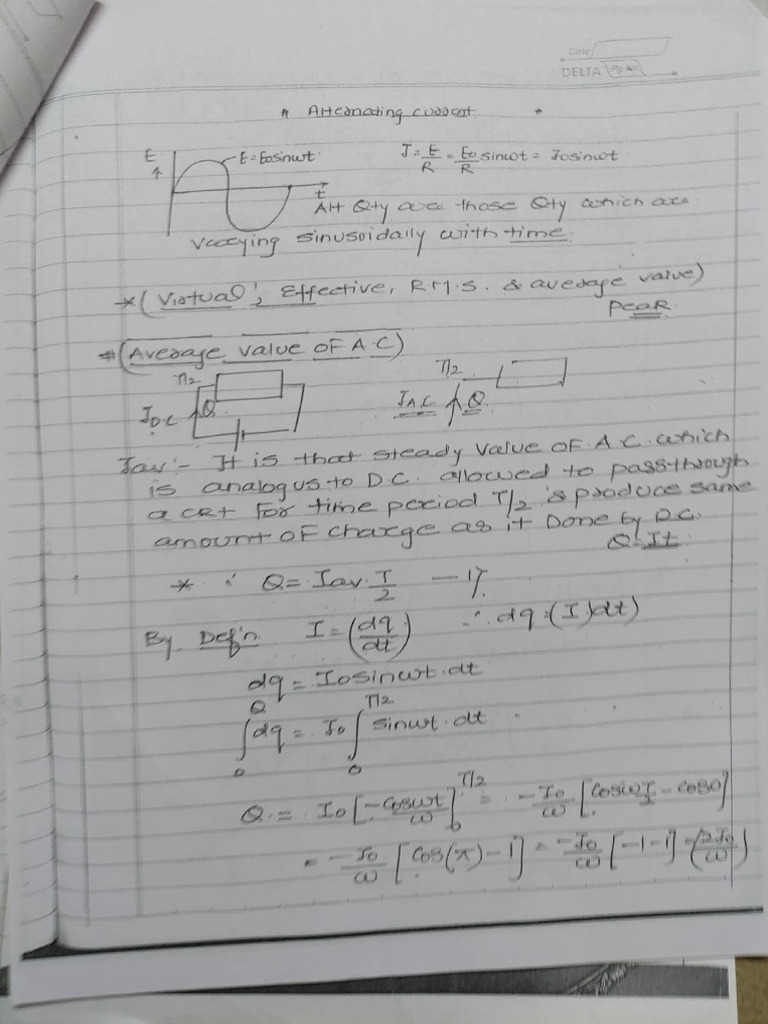 Date
DELTA
" Alternating current "
E
E = E₀sinωt
I = E/R = E₀/R sinωt = I₀sinωt
t
Alt Qty are those Qty which are
varying sinusoidally with time.
* (Virtual, Effective, R.M.S. & average value)
peak
# (Average value OF A.C)
T/2
T/2
I D.C
Q
I A.C
Q
Iav:- It is that steady value OF A.C. which
is analogus to D.C. allowed to pass through
a ckt for time period T/2 & produce same
amount OF charge as it Done by D.C.
Q = It
* ∴ Q = Iav. T/2 — 1}
By Defn I = (dq/dt) ∴ dq = (I)dt)
dq = I₀sinωt.dt
∫₀^Q dq = I₀ ∫₀^T/2 sinωt.dt
Q = I₀ [-cosωt/ω]₀^T/2 = -I₀/ω [cosωT/2 - cos0]
= -I₀/ω [cos(π) - 1] = -I₀/ω [-1-1] = (2I₀/ω)